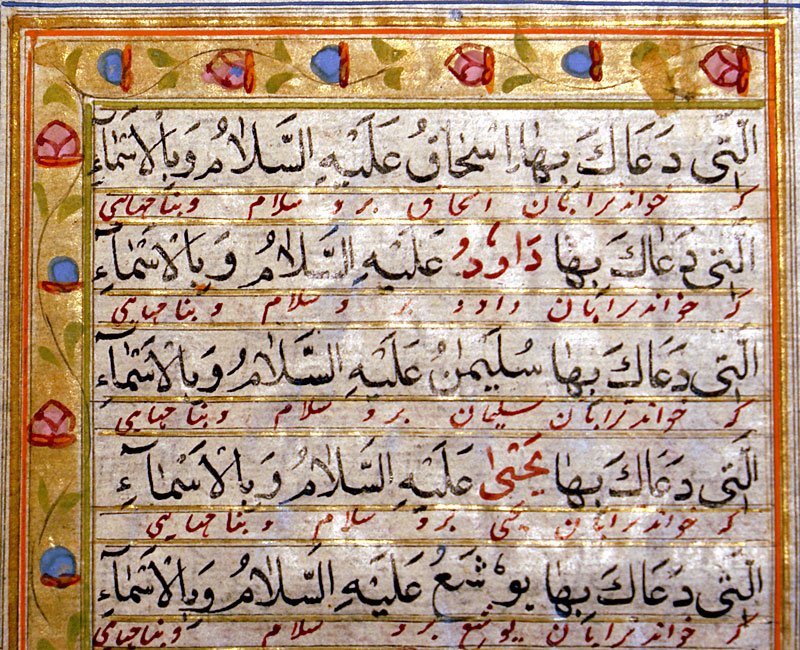 الَّتِی دَعَاكَ بِهٰا اِسْحٰاقُ عَلَیْهِ السَّلٰامُ وَبِالْاَسْمٰاءِ
که خواند ترا بآن اسحاق برو سلام وبنامهایی
الَّتِی دَعٰاكَ بِهٰا دَاوُدُ عَلَیْهِ السَّلٰامُ وَبِالْاَسْمٰاءِ
که خواند ترا بآن داود برو سلام وبنامهایی
الَّتِی دَعَاكَ بِهٰا سُلَیْمٰنُ عَلَیْهِ السَّلَامُ وَبِالْاَسْمٰاءِ
که خواند ترا بآن سلیمان برو سلام وبنامهایی
الَّتِی دَعَاكَ بِهٰا یَحْیٰی عَلَیْهِ السَّلٰامُ وَبِالْاَسْمٰآءِ
که خواند ترا بآن یحیی برو سلام وبنامهایی
الَّتِی دَعَاكَ بِهٰا یُوشَعُ عَلَیْهِ السَّلٰامُ وَبِالْاَسْمٰاءِ
که خواند ترا بآن یوشع برو سلام وبنامهایی